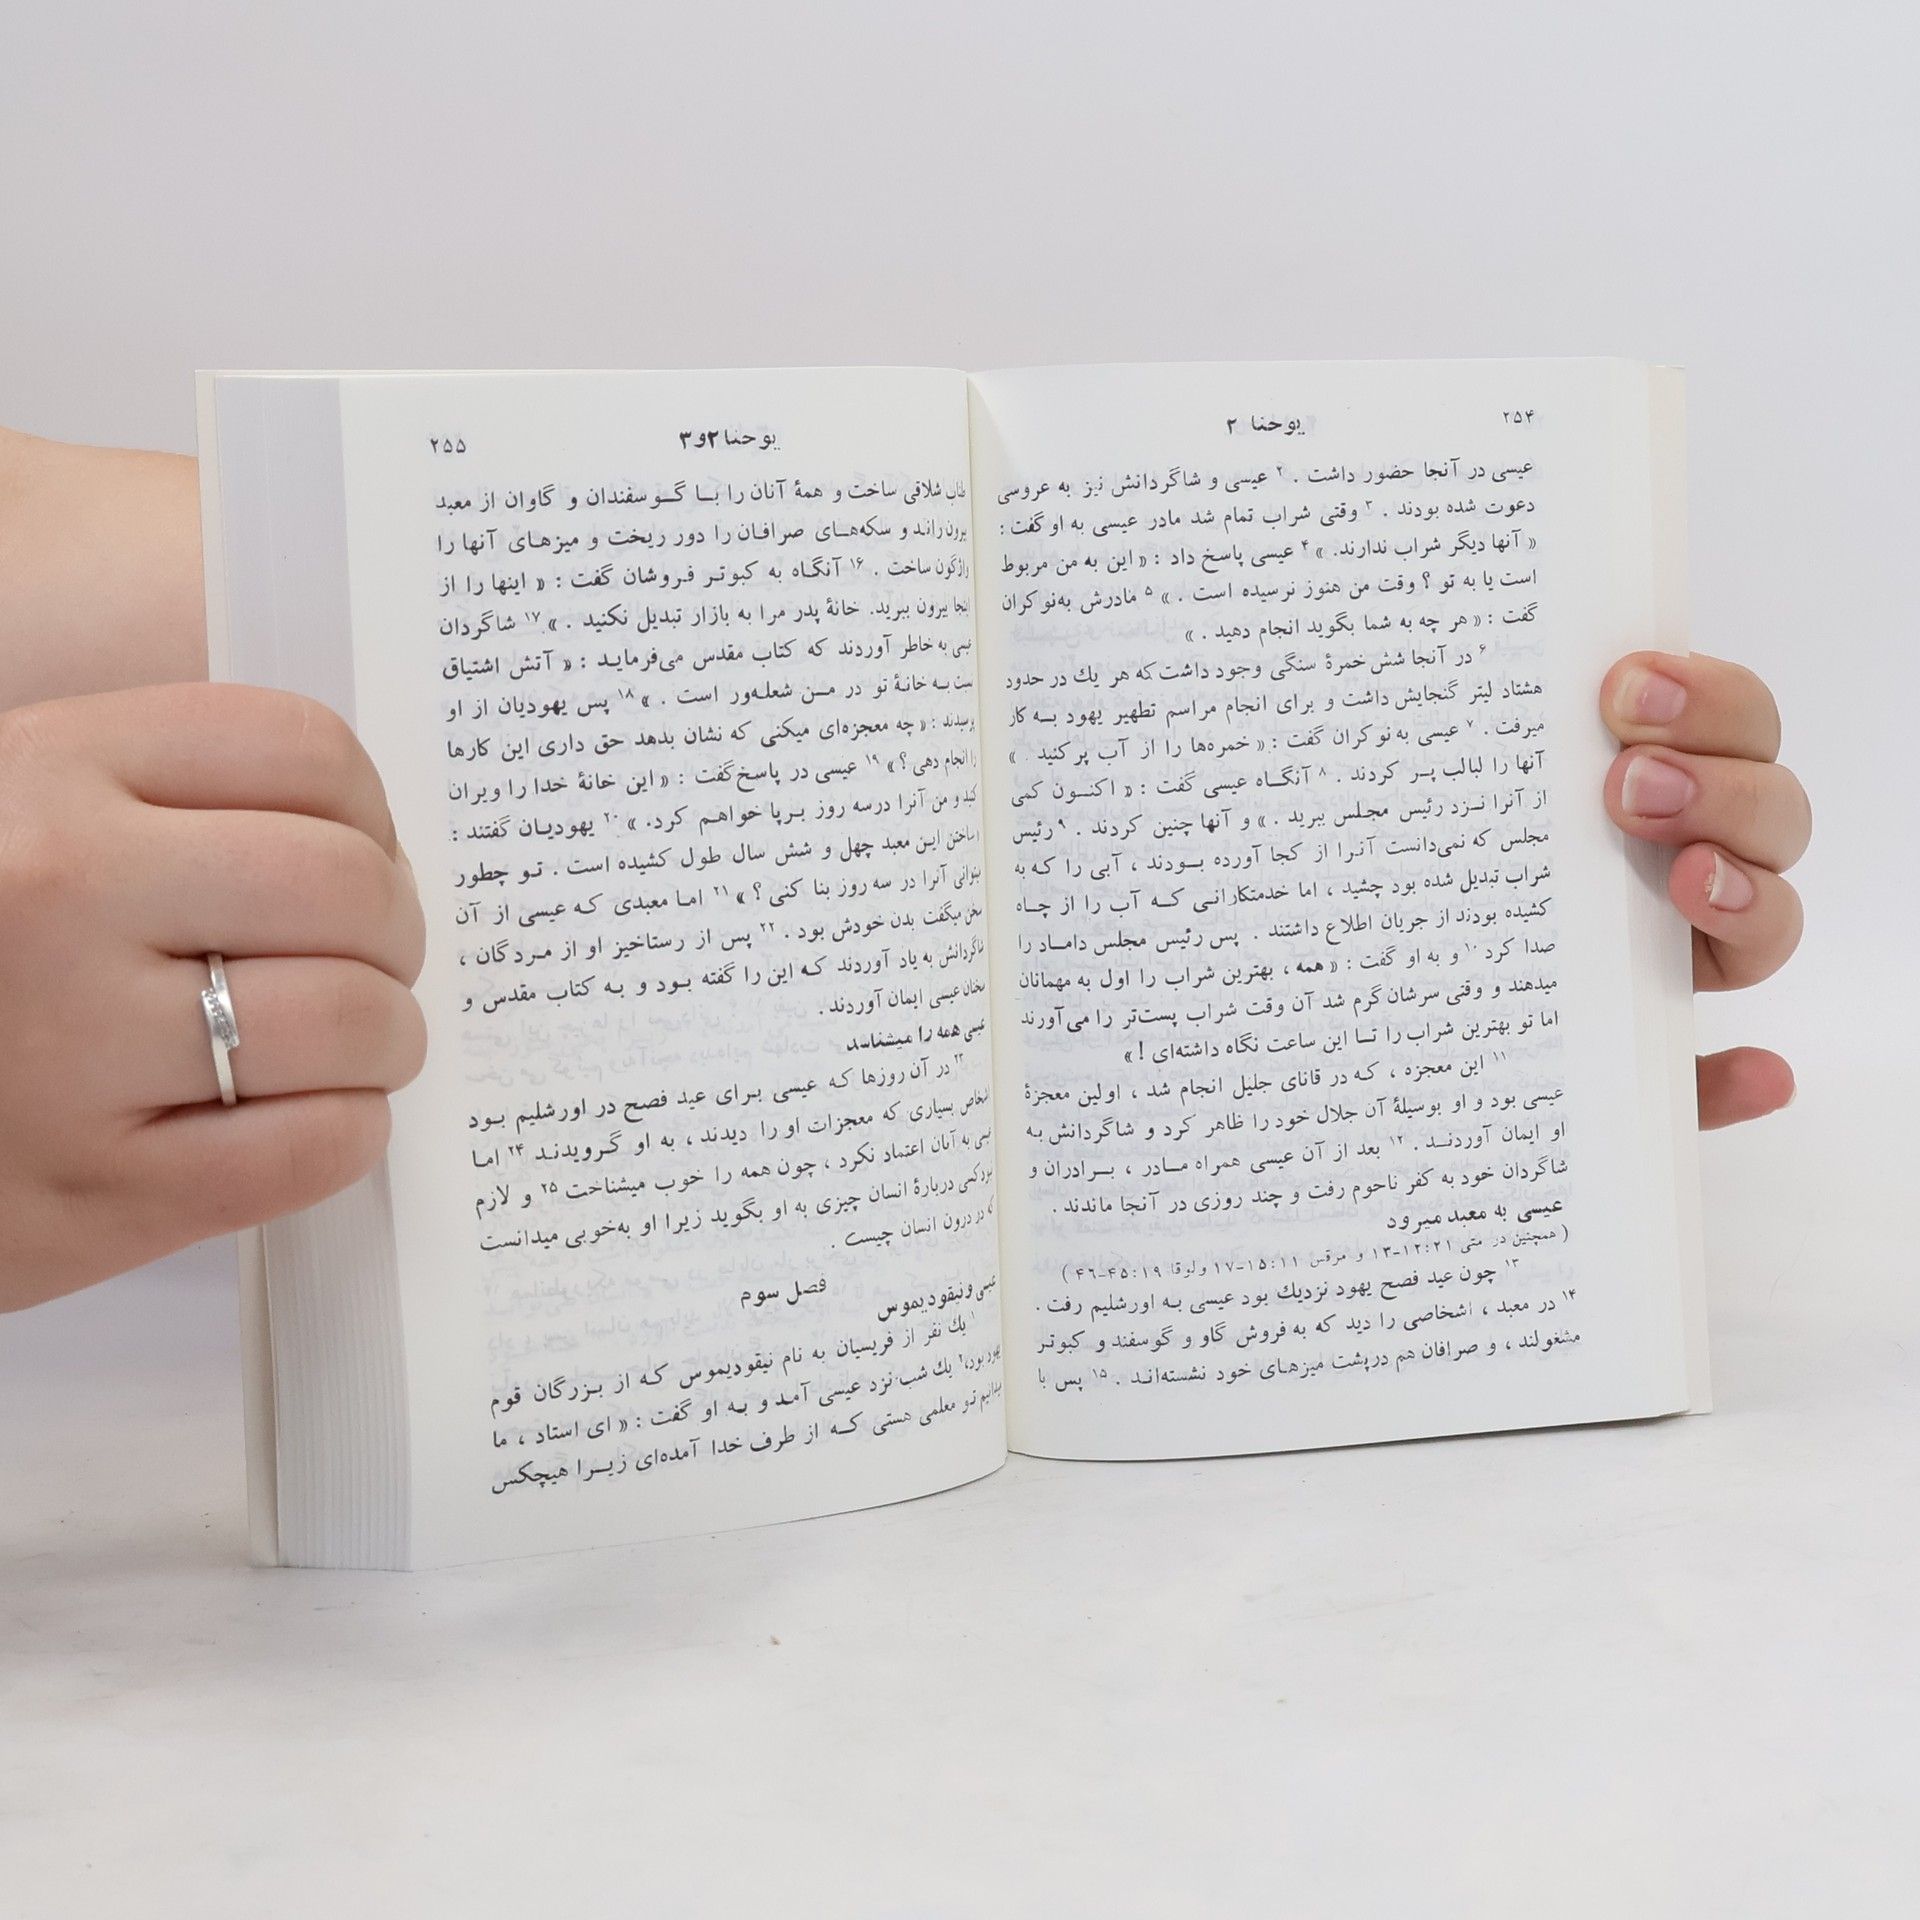 ۲۵۴
یوحنا ۲
عیسی در آنجا حضور داشت . ۲ عیسی و شاگردانش نیز به عروسی
دعوت شده بودند . ۳ وقتی شراب تمام شد مادر عیسی به او گفت :
« آنها دیگر شراب ندارند. » ۴ عیسی پاسخ داد : « این به من مربوط
است یا به تو ؟ وقت من هنوز نرسیده است . » ۵ مادرش به‌نوکران
گفت : « هر چه به شما بگوید انجام دهید . »
۶ در آنجا شش خمرهٔ سنگی وجود داشت که هر یك در حدود
هشتاد لیتر گنجایش داشت و برای انجام مراسم تطهیر یهود بـه کار
میرفت . ۷ عیسی به نوکران گفت : « خمره‌ها را از آب پرکنید . »
آنها را لبالب پـر کردند . ۸ آنگـاه عیسی گفت : « اکنـون کمی
از آنرا نـزد رئیس مجـلس ببرید . » و آنها چنین کردند . ۹ رئیس
مجلس که نمی‌دانست آنـرا از کجا آورده بـودند ، آبی را کـه به
شراب تبدیل شده بود چشید ، اما خدمتکارانـی کـه آب را از چـاه
کشیده بودند از جریان اطلاع داشتند . پس رئیس مجلس دامـاد را
صدا کرد ۱۰ و به او گفت : « همه ، بهترین شراب را اول به مهمانان
میدهند و وقتی سرشان گرم شد آن وقت شراب پست‌تر را می‌آورند
اما تو بهترین شراب را تـا این ساعت نگاه داشته‌ای ! »
۱۱ این معجزه ، کـه در قانای جلیل انجام شد ، اولین معجزهٔ
عیسی بود و او بوسیلهٔ آن جلال خود را ظاهر کرد و شاگردانش به
او ایمان آوردنـد . ۱۲ بعد از آن عیسی همراه مـادر ، بـرادران و
شاگردان خود به کفر ناحوم رفت و چند روزی در آنجا ماندند .
عیسی به معبد میرود
( همچنین در متی ۱۲:۲۱-۱۳ و مرقس ۱۵:۱۱-۱۷ ولوقا ۴۵:۱۹-۴۶ )
۱۳ چون عید فصح یهود نزدیك بود عیسی بـه اورشلیم رفت .
۱۴ در معبد ، اشخاصی را دید که به فروش گاو و گوسفند و کبوتـر
مشغولند ، و صرافان هم درپشت میزهـای خود نشسته‌انـد . ۱۵ پس با
۲۵۵
یوحنا ۲و۳
طناب شلاقی ساخت و همهٔ آنان را بـا گـوسفندان و گاوان از معبد
بیرون رانـد و سکه‌هـای صرافـان را دور ریخت و میزهـای آنها را
واژگون ساخت . ۱۶ آنگـاه به کبوتـر فـروشان گفت : « اینها را از
اینجا بیرون ببرید. خانهٔ پدر مرا به بازار تبدیل نکنید . » ۱۷ شاگردان
عیسی به خاطر آوردند که کتاب مقدس می‌فرمایـد : « آتش اشتیاق
نسبت بـه خانـهٔ تو در مـن شعله‌ور است . » ۱۸ پس یهودیان از او
پرسیدند : « چه معجزه‌ای میکنی که نشان بدهد حق داری این کارها
را انجام دهی ؟ » ۱۹ عیسی در پاسخ گفت : « این خانهٔ خدا را ویران
کنید و من آنرا درسه روز بـرپا خواهـم کرد. » ۲۰ یهودیـان گفتند :
« ساختن ایـن معبد چهل و شش سال طول کشیده است . تـو چطور
میتوانی آنرا در سه روز بنا کنی ؟ » ۲۱ امـا معبدی کـه عیسی از آن
سخن میگفت بدن خودش بود . ۲۲ پس از رستاخیز او از مـردگان ،
شاگردانش به یاد آوردند کـه این را گفته بـود و بـه کتاب مقدس و
سخنان عیسی ایمان آوردند .
عیسی همه را میشناسد
۲۳ در آن روزها کـه عیسی بـرای عید فصح در اورشلیم بـود
اشخاص بسیاری که معجزات او را دیدند ، به او گـرویدنـد ۲۴ امـا
عیسی به آنان اعتماد نکرد ، چون همه را خوب میشناخت ۲۵ و لازم
نبود کسی دربارهٔ انسان چیزی به او بگوید زیرا او به‌خوبی میدانست
که در درون انسان چیست .
فصل سوم
عیسی و نیقودیموس
۱ یك نفر از فریسیان به نام نیقودیموس کـه از بـزرگان قوم
یهود بود، ۲ یك شب نزد عیسی آمـد و بـه او گفت : « ای استاد ، ما
میدانیم تـو معلمی هستی کـه از طرف خدا آمده‌ای زیـرا هیچکس